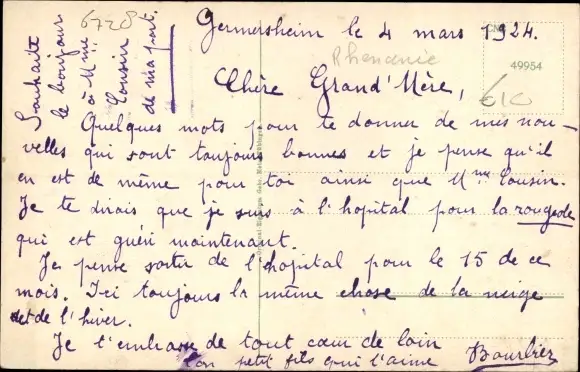 6728
Souhaite
le bonjour
à Mme
Cousin
de ma part.
Germersheim le 4 mars 1924.
Rhénanie
49954
Chère Grand'Mère,
Quelques mots pour te donner de mes nou-
velles qui sont toujours bonnes et je pense qu'il
en est de même pour toi ainsi que Mme Cousin.
Je te dirais que je suis à l'hopital pour la rougeole
qui est guéri maintenant.
Je pense sortir de l'hopital pour le 15 de ce
mois. Ici toujours la même chose de la neige
et de l'hiver.
Je t'embrasse de tout cœur de loin
Ton petit fils qui t'aime